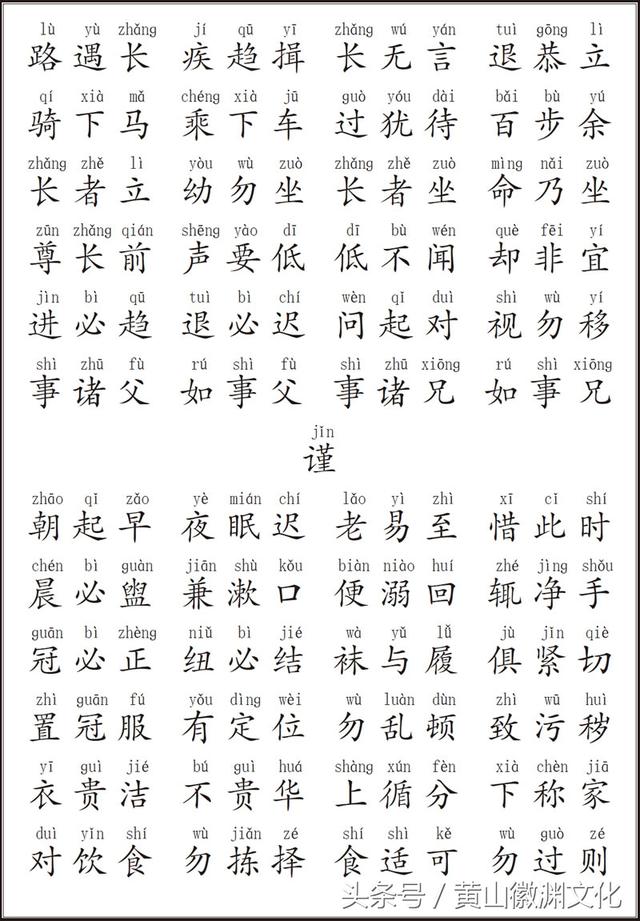 lù yù zhǎng jí qū yī zhǎng wú yán tuì gōng lì
路遇长 疾趋揖 长无言 退恭立
qí xià mǎ chéng xià jū guò yóu dài bǎi bù yú
骑下马 乘下车 过犹待 百步余
zhǎng zhě lì yòu wù zuò zhǎng zhě zuò mìng nǎi zuò
长者立 幼勿坐 长者坐 命乃坐
zūn zhǎng qián shēng yào dī dī bù wén què fēi yí
尊长前 声要低 低不闻 却非宜
jìn bì qū tuì bì chí wèn qǐ duì shì wù yí
进必趋 退必迟 问起对 视勿移
shì zhū fù rú shì fù shì zhū xiōng rú shì xiōng
事诸父 如事父 事诸兄 如事兄
jǐn
谨
zhāo qǐ zǎo yè mián chí lǎo yì zhì xī cǐ shí
朝起早 夜眠迟 老易至 惜此时
chén bì guàn jiān shù kǒu biàn niào huí zhé jìng shǒu
晨必盥 兼漱口 便溺回 辄净手
guān bì zhèng niǔ bì jié wà yǔ lǚ jù jǐn qiè
冠必正 纽必结 袜与履 俱紧切
zhì guān fú yǒu dìng wèi wù luàn dùn zhì wū huì
置冠服 有定位 勿乱顿 致污秽
yī guì jié bú guì huá shàng xún fèn xià chèn jiā
衣贵洁 不贵华 上循分 下称家
duì yǐn shí wù jiǎn zé shí shì kě wù guò zé
对饮食 勿拣择 食适可 勿过则
头条号 / 黄山徽渊文化